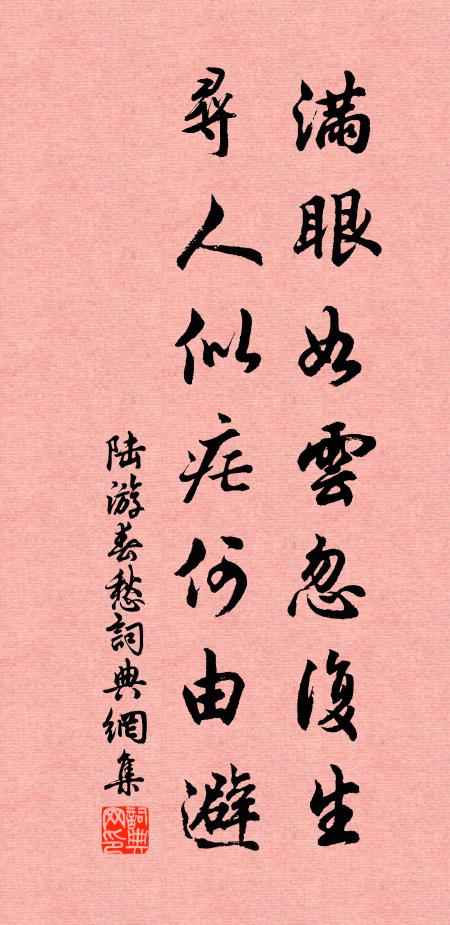 滿眼如雲忽復生
尋人似疟何由避
陸游春愁詞典網集
詞典网印